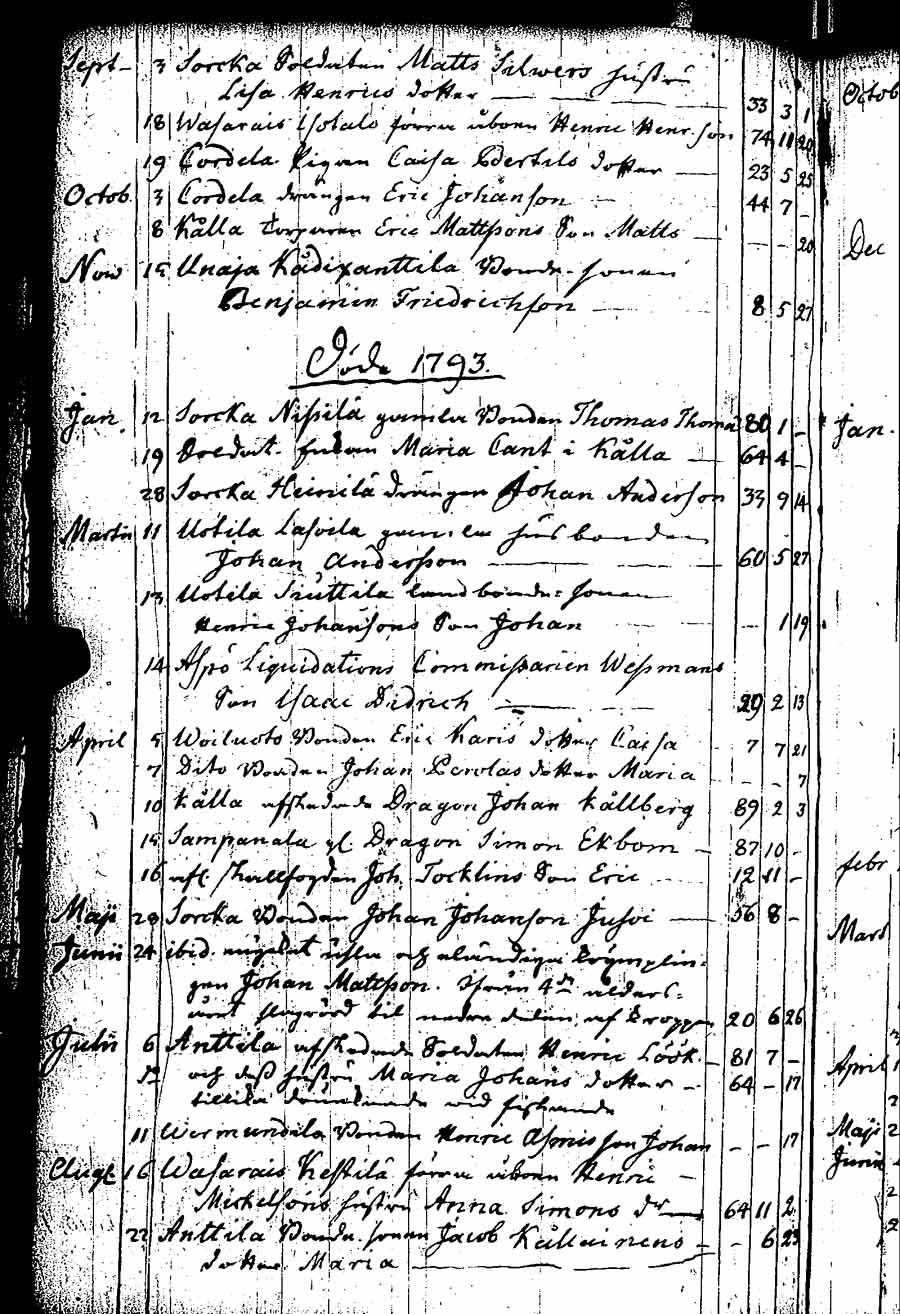 Sept 3 Sorcka Soldaten Matts Silwers hustru
Lisa Henrics dotter — 33 3 1
18 Wasarais Isotalo förra åboen Henric Henr. son 74 11 20
19 Cordela Pigan Caisa Bertils dotter — 23 5 25
Octob. 3 Cordela drängen Eric Johanson — 44 7 -
8 Kålla Torparen Eric Mattsons Son Matts — - - 20
Nov 15 Unaja Kådixanttila Bonde-sonen
Benjamin Friedrichson — 8 5 27
Döde 1793.
Jan. 12 Sorcka Nissilä gamla Bonden Thomas Thoma 80 1 -
19 Soldat Maria Cant i Kålla — 64 4 -
28 Sorcka Heinilä drängen Johan Anderson 33 9 14
Martii 11 Uotila Lasoela gamla husbonden
Johan Andersson — 60 5 27
13 Uotila Siuttila landbonde-sonen
Henric Johansons Son Johan - 1 19
14 Aspö Liquidations Commissarien Wessmans
Son Isaac Didrich — 29 2 13
April 5 Woiluoto Bonden Eric Karis dotter Caisa 7 7 21
7 Dito Bonden Johan Perolas dotter Maria - - 7
10 Kålla afskedade Dragon Johan Kållberg 89 2 3
15 Sampanala gl. Dragon Simon Ekbom — 87 10 -
16 afl. Joh. Tocklins Son Eric 12 11 -
Maji 28 Sorcka Bonden Johan Johanson Jusoi — 56 8 -
Junii 24 ibid. och eländiga krymplin-
gen Johan Mattson. ifrån 4de ålders-
året slagrörd til nedre delen af kroppen 20 6 26
Julii 6 Anttila afskedade Soldaten Henric Löök — 81 7 -
och dess hustru Maria Johans dotter — 64 - 17
tillika drunknade vid fiskande
11 Wermundila Bonden Henric son Johan - - 17
Augt 16 Wasarais Kestilä förra åboen Henric
Mickelsons hustru Anna Simons dr — 64 11 2
22 Anttila Bonde sonen Jacob Kållainens — - 6 23
dotter Maria —
Octob
Dec
Jan.
febr
Mars
April
Maji 2
Junii